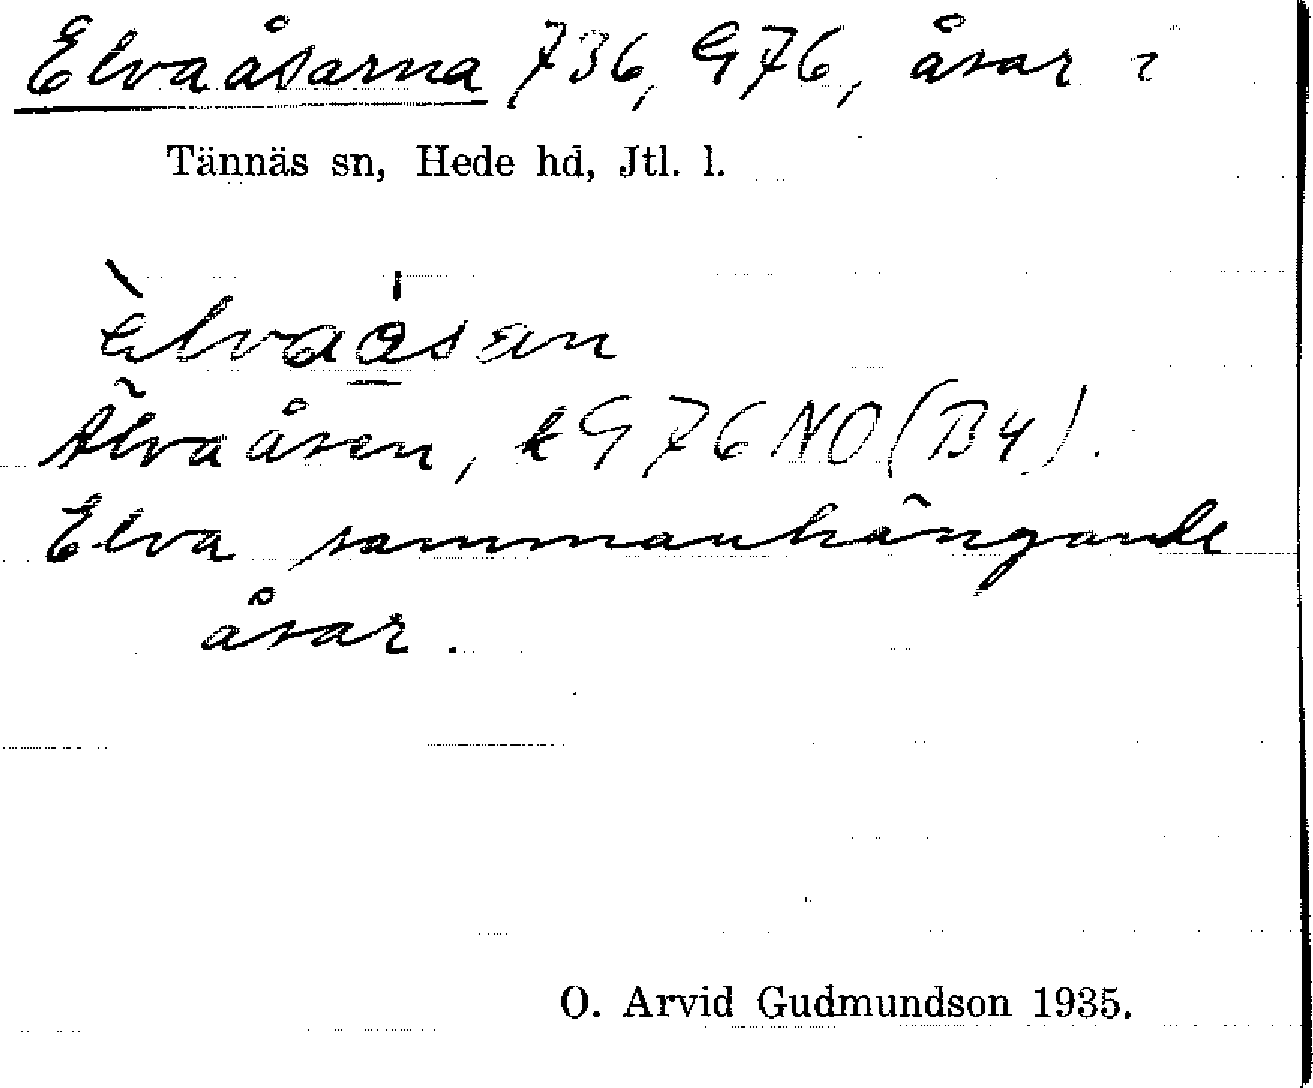 Elvaåsarna 736, G76, åsar i
Tännäs sn, Hede hd, Jtl. l.
èlvaåsan
Älvaåsen, k G76 NO (B4).
Elva sammanhängande
åsar.
O. Arvid Gudmundson 1935.